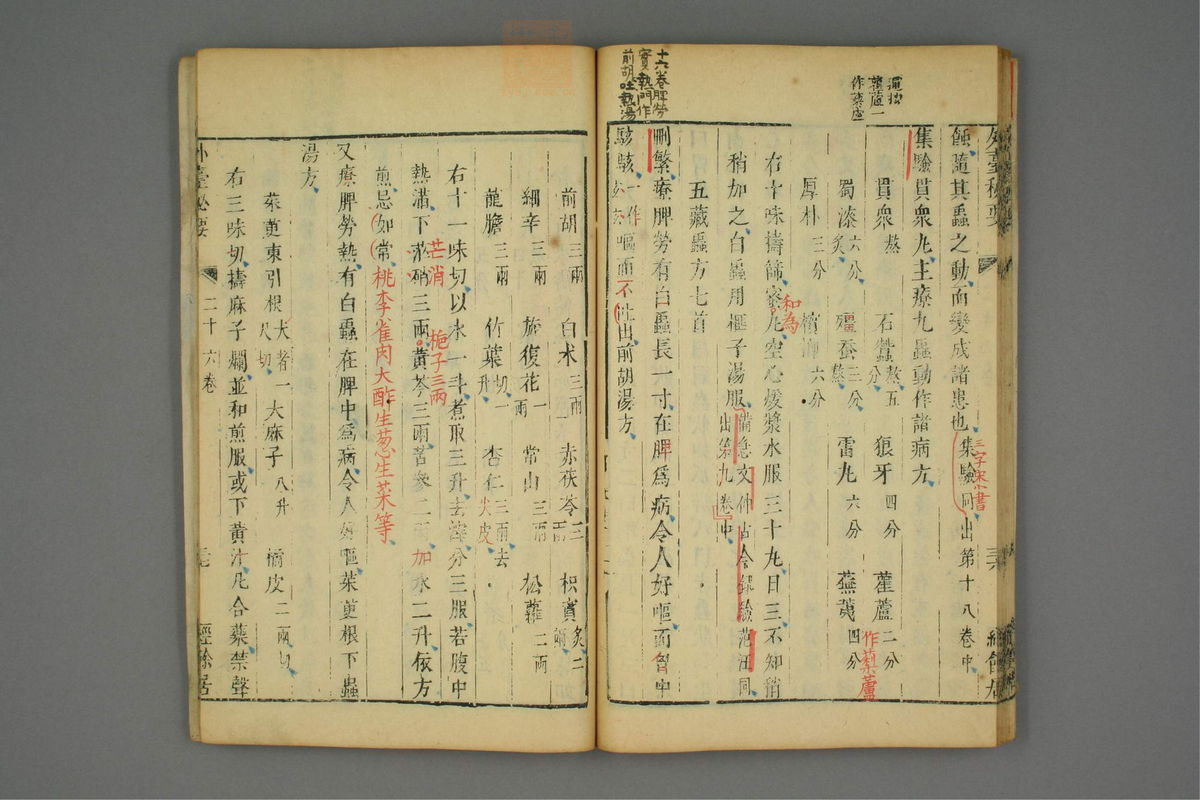 外臺秘要
蝕隨其蟲之動而變成諸患也 集驗同出第十八卷中
三字宋小書
集驗貫衆丸主療九蟲動作諸病方
貫衆 熬 石蠶 熬五分 狼牙 四分 雚蘆 二分
作藜蘆
蜀漆 六分炙 殭蚕 三分熬 雷丸 六分 蕪荑 四分
厚朴 三分 檳榔 六分
右十味擣篩蜜丸空心煖漿水服三十丸日三不知稍
和為
稍加之白蟲用榧子湯服 備急文仲古今録驗范汪同出第九卷中
五藏蟲方七首
刪繁療脾勞有白蟲長一寸在脾爲病令人好嘔而胷中
駭駭 一作 嘔而不吐出前胡湯方
十六卷脾勞
實熱門作
前胡吐熱湯
前胡 三兩 白术 三兩 赤茯苓 三兩 枳實 炙二兩
細辛 三兩 旋復花 一兩 常山 三兩 松蘿 二兩
龍膽 三兩 竹葉 切一升 杏仁 三兩去尖皮
右十一味切以水一斗煮取三升去滓分三服若腹中
熱滿下 硝三兩黄芩三兩苦參二兩加水二升依方
芒消
梔子三兩
煎忌如常桃李雀肉大酢生葱生菜等
又療脾勞熱有白蟲在脾中爲病令人好嘔茱萸根下蟲
湯方
茱萸東引根 大者一尺切 大麻子 八升 橘皮 二兩切
右三味切擣麻子爛並和煎服或下黄汁凡合藥禁聲
外臺秘要 二十六卷 經餘居